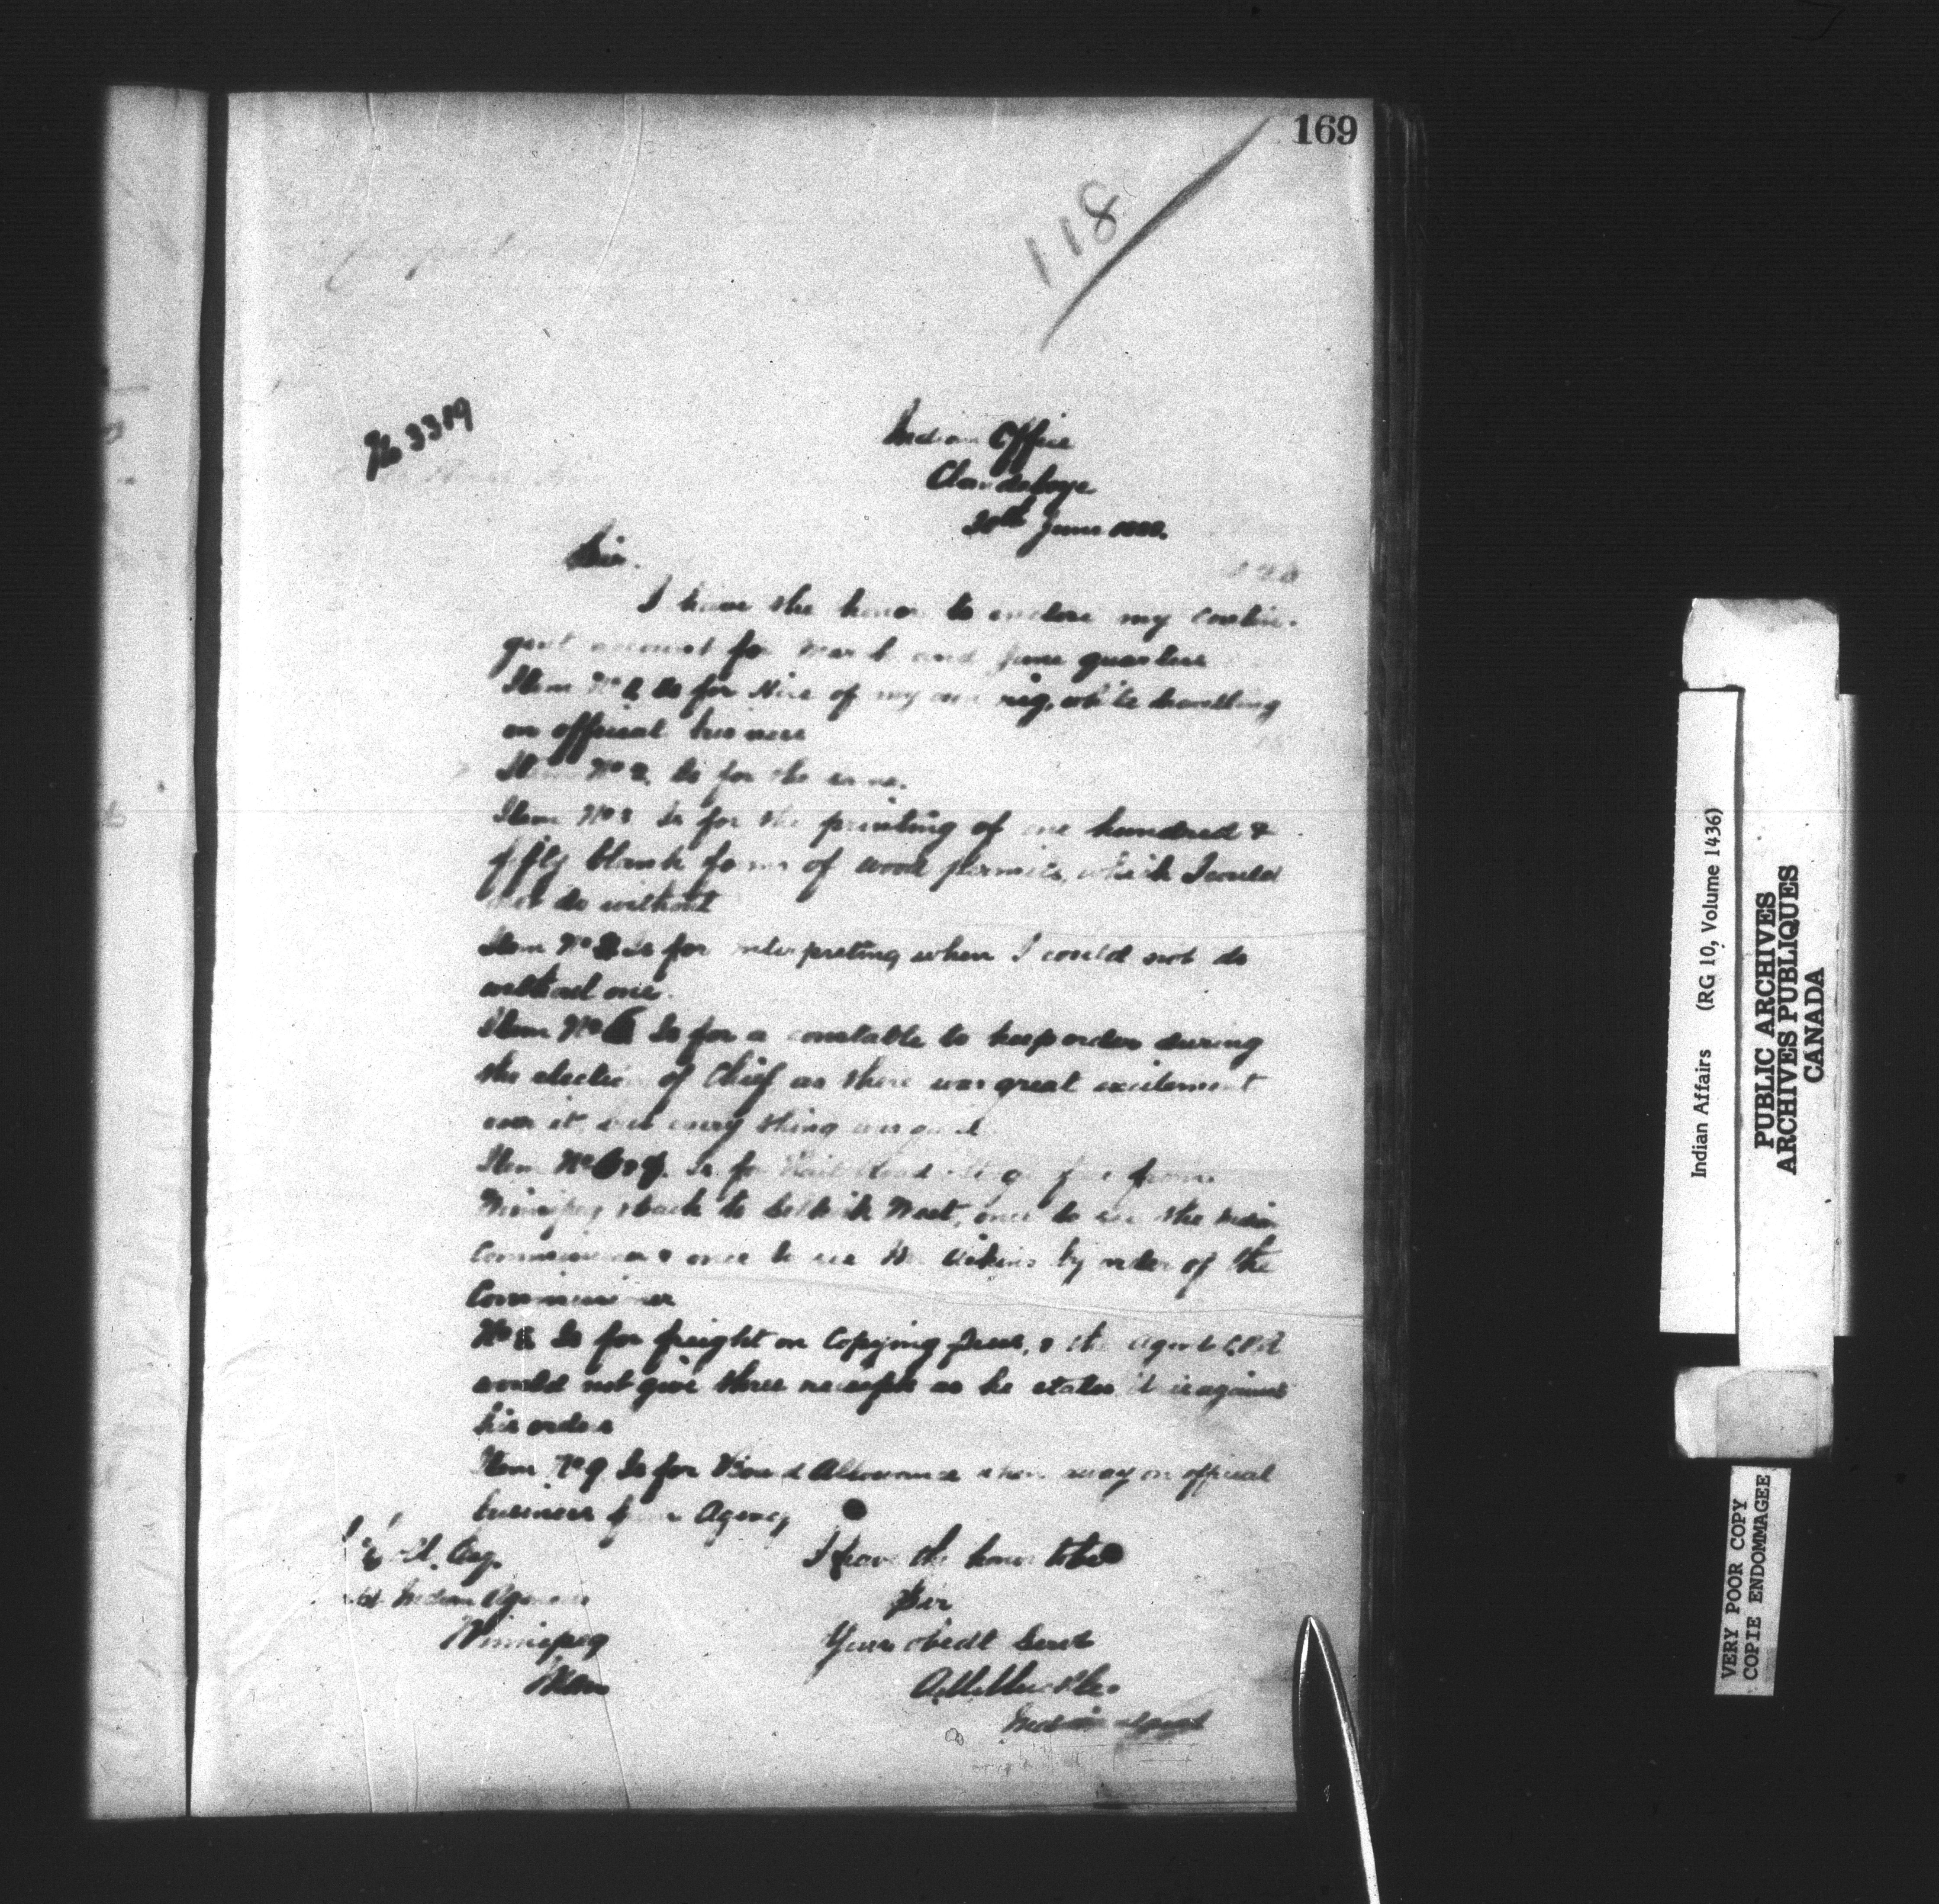 169
118
No 3319
Indian Office
Clandeboye
30th June
Sir.
I have the honor to enclose my contin-
gent account for March and June quarters
Item No 1 Is for Hire of my own rig, while travelling
on official business
Item No 2. Is for the same.
Item No 3 Is for the printing of one hundred &
fifty blank forms of wood permits, which I could
not do without
Item No Is for interpreting when I could not do
without one.
Item No Is for a constable to keep order during
the election of Chief as there was great excitement
over it, but every thing was
Item No 6 & 7. Is for from
Winnipeg & back to Selkirk West, once to see the Indian
Commissioner & once to see Mr. by order of the
Commissioner
No 8 Is for freight on Copying Press, & the Agent CPR
would not give three receipts as he states it is against
his orders
Item No 9 Is for Board Allowance when away on official
business from Agency
Esq.
Indian Agencies
Winnipeg
Man
I have the honor to be
Sir
Your obedt Servt
A. M. Muckle.
Indian Agent
Indian Affairs (RG 10, Volume 1436)
PUBLIC ARCHIVES
ARCHIVES PUBLIQUES
CANADA
VERY POOR COPY
COPIE ENDOMMAGEE